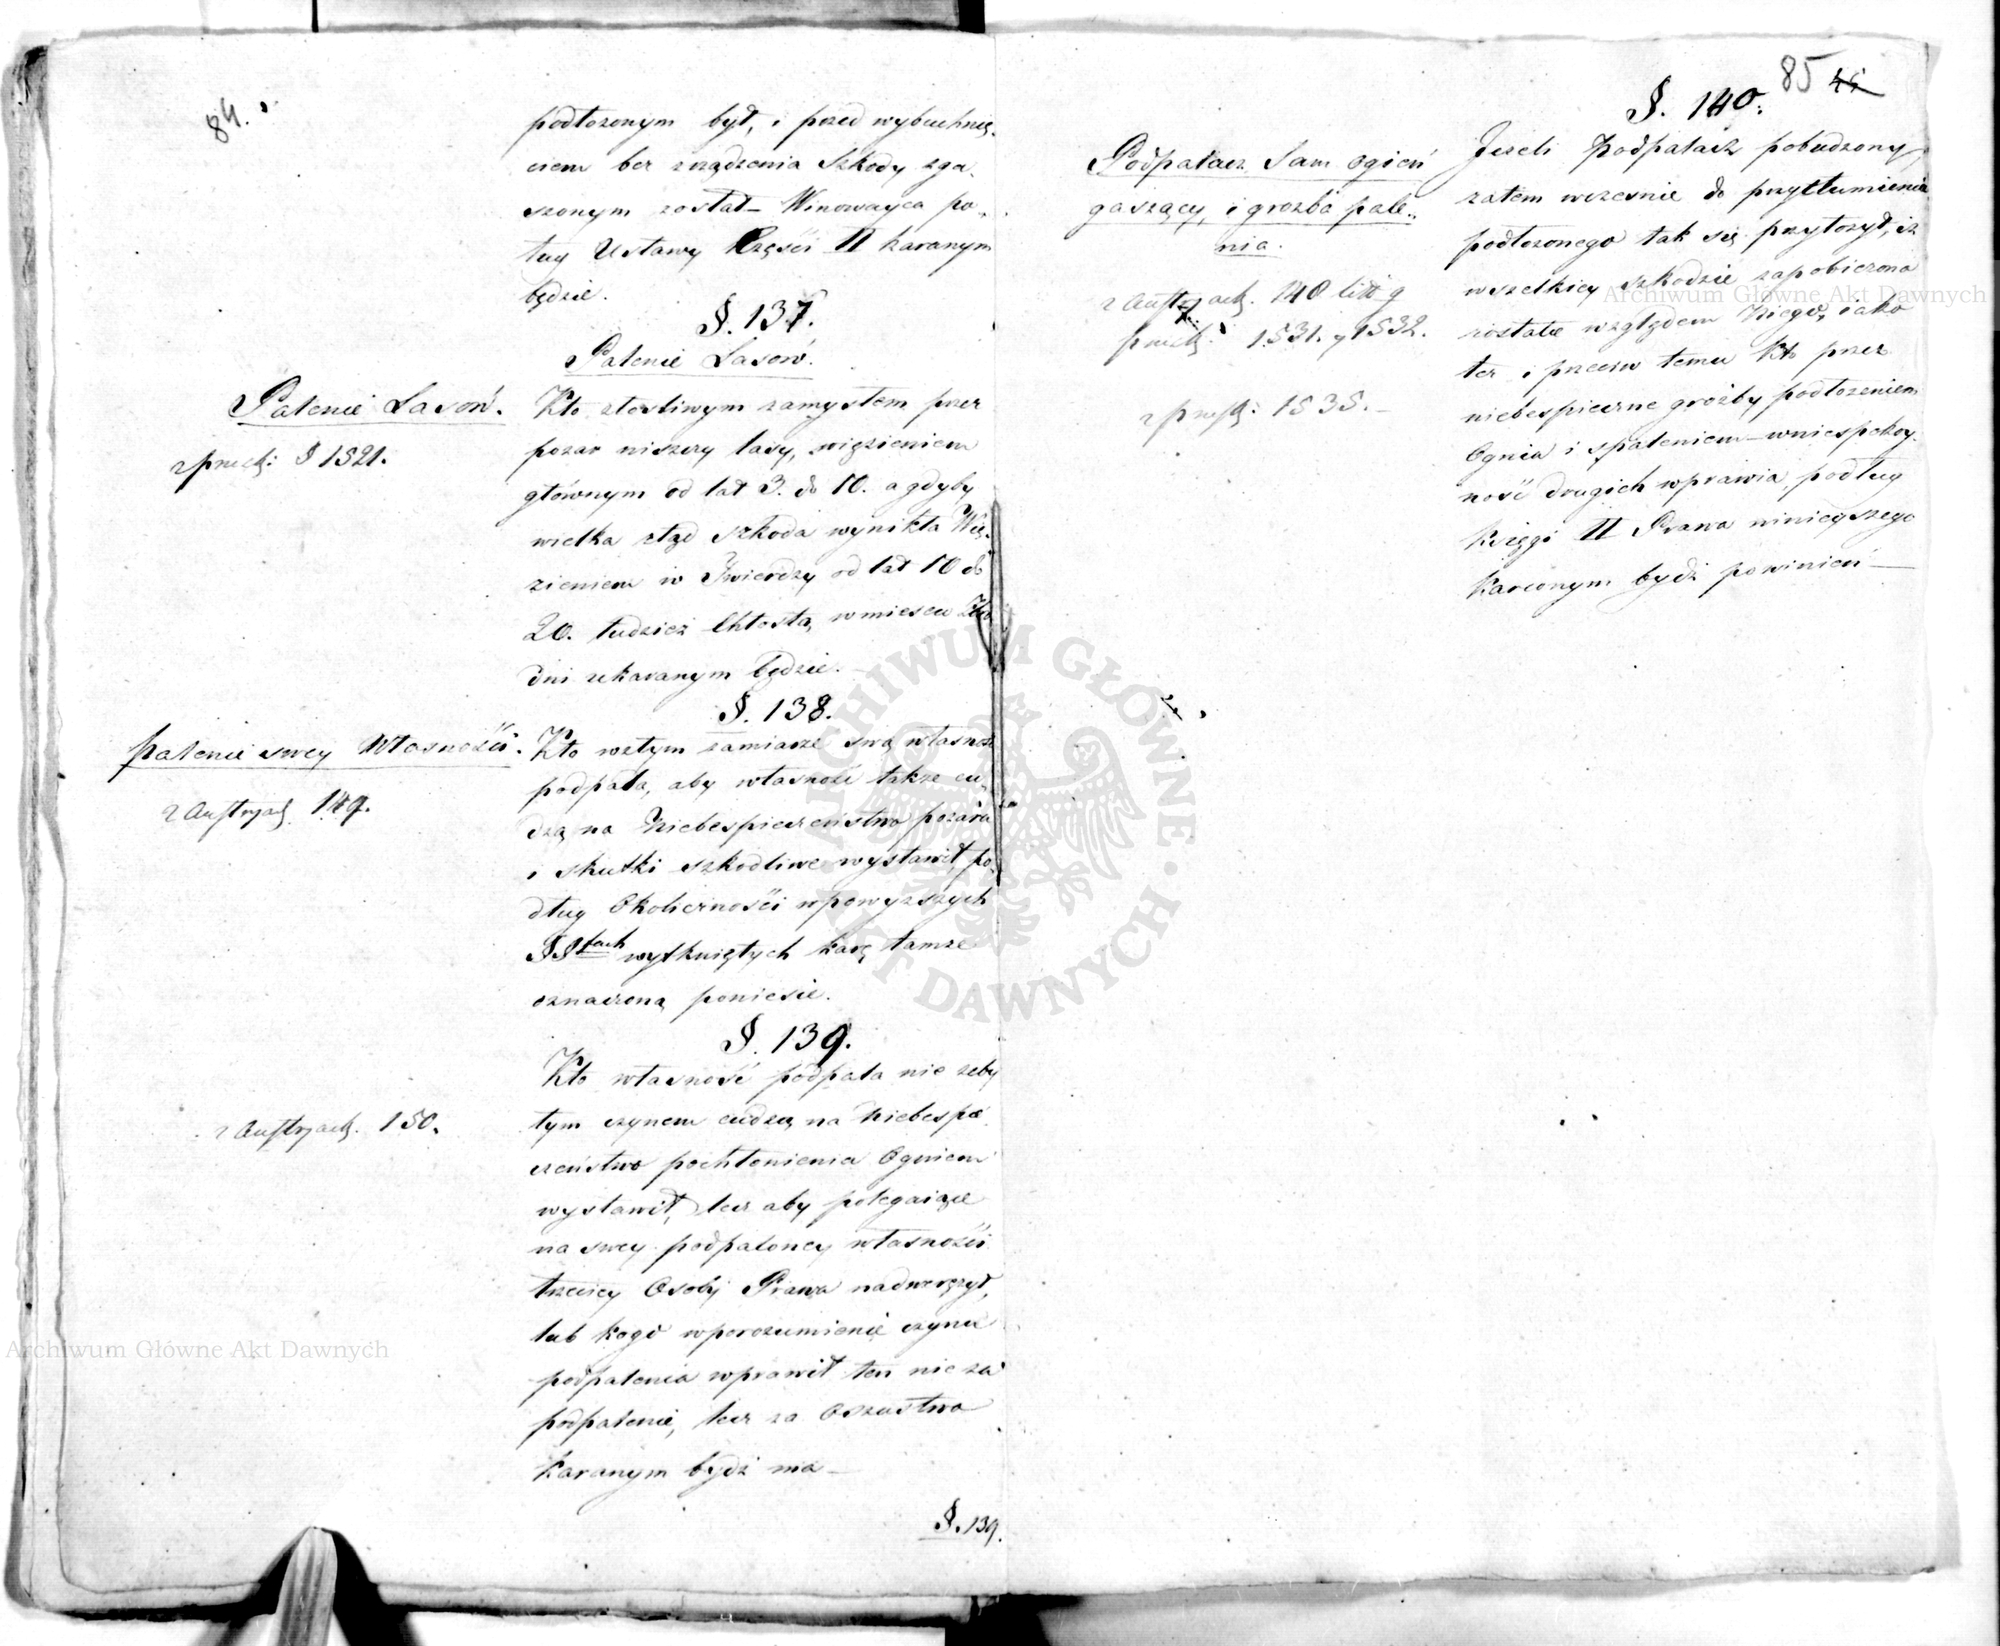 84.
podłożonym był, i przed wybuchnię-
ciem bez zrządzenia Szkody zga-
szonym został – Winowayca po-
ług Ustawy Części II karanym
będzie.
§. 137.
Palenie Lasów.
Palenie Lasów.
z prusk: § 1521.
Kto złośliwym zamysłem przez
pożar niszczy lasy, więzieniem
głównym od lat 3. do 10. a gdyby
wielka ztąd szkoda wynikła Wię-
zieniem w Twierdzy od lat 10 do
20. tudzież Chłostą, w miescu Zbro
dni ukaranym będzie. –
§. 138.
Palenie swey Własności.
z Austryach. 149.
Kto w złym zamiarze swą własność
podpala, aby własność także cu-
dzą na Niebespieczeństwo pożaru
i skutki szkodliwe wystawił, po-
dług Okoliczności w powyższych
§§fach wytkniętych karę tamże
oznaczoną poniesie.
§. 139.
z Austryach. 150.
Kto własność podpala nie żeby
tym czynem cudzą na Niebespie
czeństwo pochłonienia Ogniem
wystawił, lecz aby polegaiące
na swey podpaloney własności
trzeciey Osoby Prawa nadwerężył,
lub kogo w porozumienie czynu
podpalenia wprawił ten nie za
podpalenie, lecz za Oszustwo
karanym bydź ma –
§. 139.
85
§. 140.
Podpalacz Sam ogień
gaszący, i groźba pale-
nia.
z Austryach. 140 litt g
prusk: 1531. y 1532.
z prusk: 1535. –
Jeżeli Podpalacz pobudzony
żalem wcześnie do przytłumienia
podłożonego tak się przyłożył, iż
wszelkiey szkodzie zapobieżono
zostało względem Niego, iako
też i przeciw temu Kto przez
niebespieczne groźby podłożeniem
Ognia i spaleniem – w niespokoy-
ność drugich wprawia, podług
Księgi II Prawa ninieyszego
Karconym bydź powinien –
ARCHIWUM GŁÓWNE AKT DAWNYCH
Archiwum Główne Akt Dawnych
Archiwum Główne Akt Dawnych